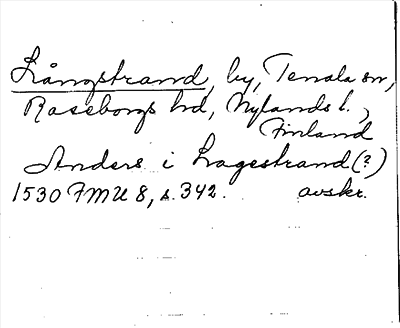 Långstrand, by, Tenala sn,
Raseborgs hd, Nylands l.,
Finland
Anders i Lagestrand (?)
1530 FMU 8, s. 342. avskr.